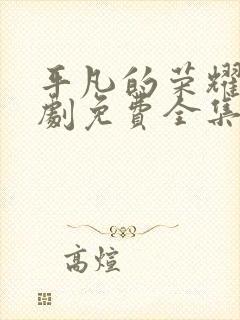 平凡的荣耀
劇免費全集
高煊